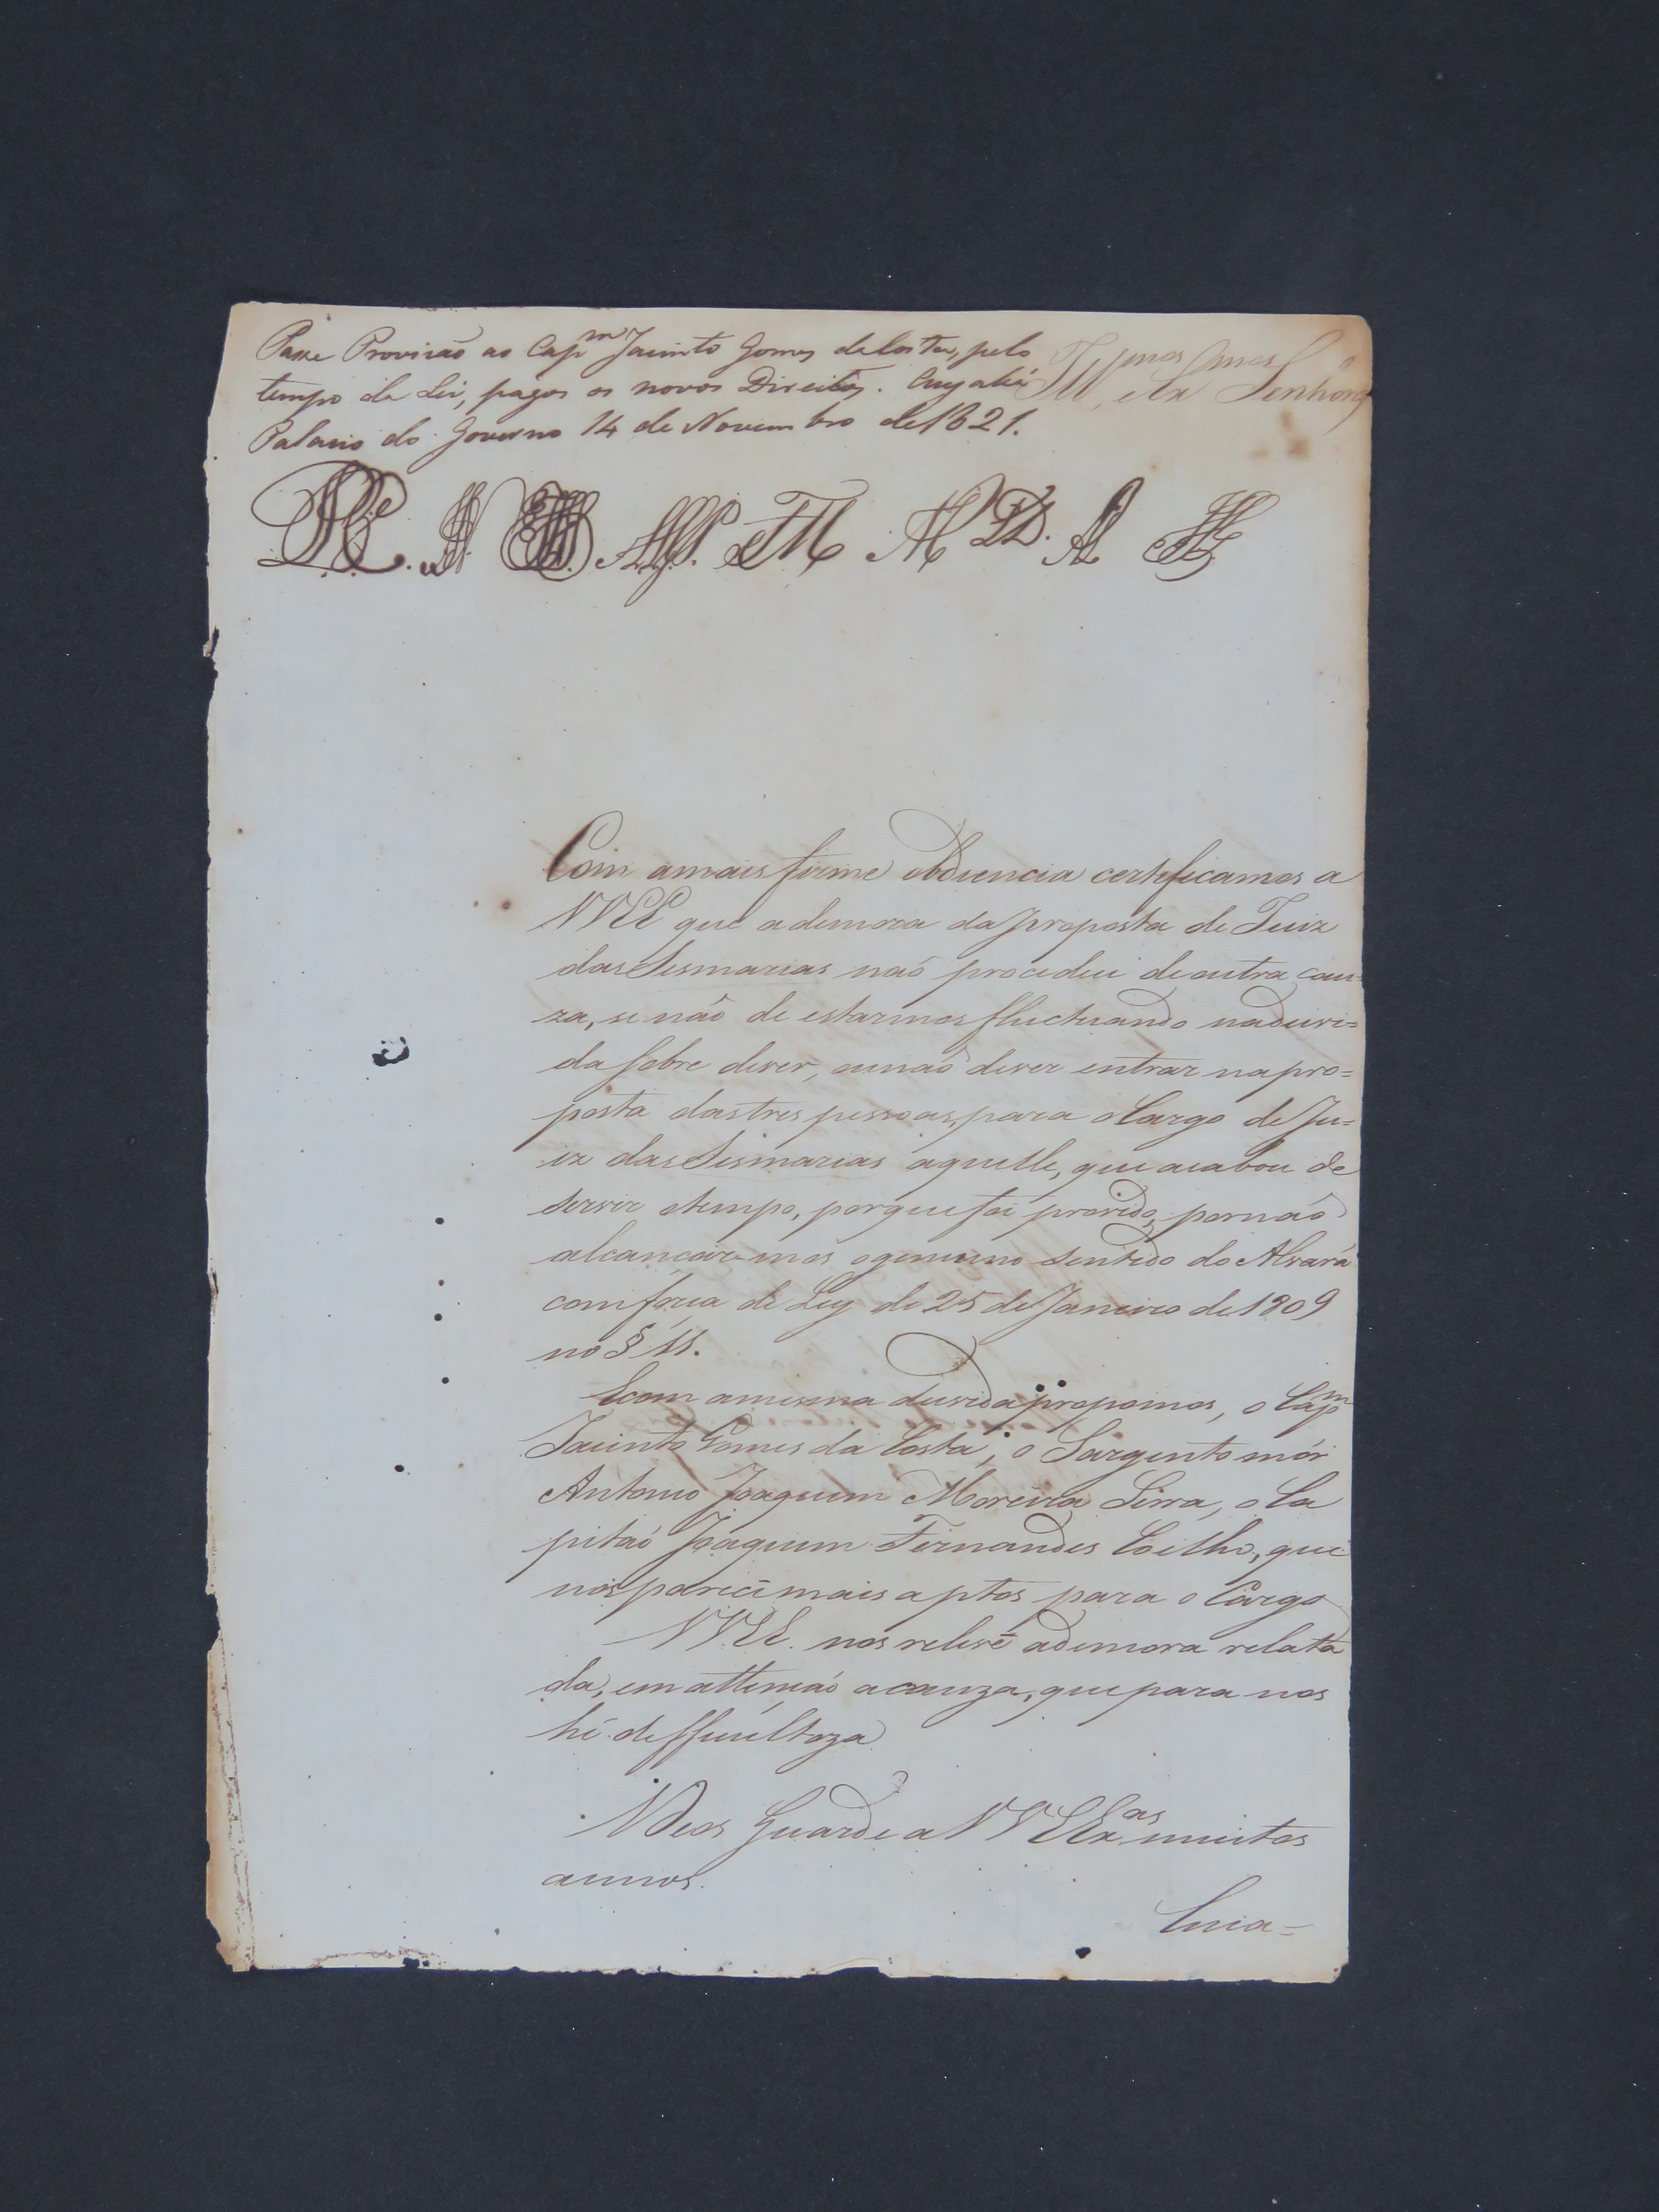 Passe Provizaõ ao Cap.m Jacinto Gomes da Costa, pelo
tempo da Lei, pagos os novos Direitos. Cuyabá
Palacio do Governo 14 de Novembro de 1821.
Ill.mos e Ex.mos Senhores
Com amais firme obdiencia certeficamos a
VVEE que ademora da proposta de Juiz
das Sesmarias naõ procedeu de outra cau=
za, se naõ de estarmos fluctuando naduvi=
da sobre dever, ounaõ dever entrar napro=
posta dastres pessoas, para o Cargo de Ju=
iz das Sismarias aquelle, que acabou de
servir otempo, porque foi provido, pornaõ
alcançar-mos ogenuino sentido do Alvará
comforça de Ley de 25 de Janeiro de 1809
no § 11.
Ecom amesma duvida propomos, o Cap.m
Jacinto Gomes da Costa, o Sargento mór
Antonio Joaquim Moreira Serra, o Ca
pitaõ Joaquim Fernandes Coelho, que
nos parece mais aptos para o Cargo
VVEE. nos releve ademora relata
da, em attençaõ acauza, que para nos
hé deffecultoza
Deos Guarde a VVEEx.as muitos
annos.
Cuia=